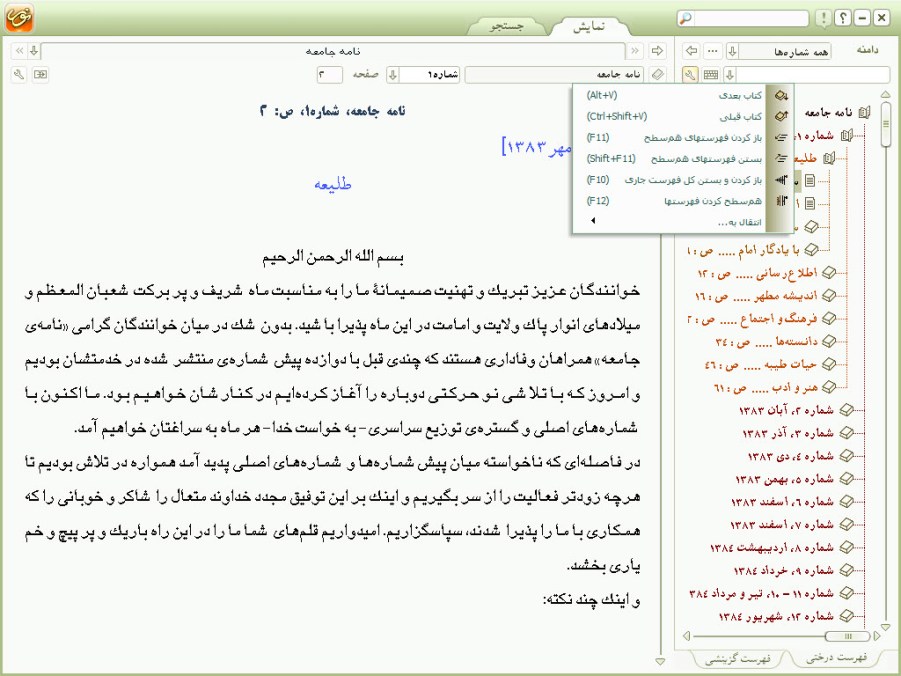 نمایش
جستجو
دامنه
همه شماره‌ها
نامه جامعه
نامه جامعه
شماره۱
صفحه
۲
نامه جامعه، شماره۱، ص: ۲
مهر۱۳۸۳]
طلیعه
بسم الله الرحمن الرحیم
خوانندگان عزیز تبریك و تهنیت صمیمانۀ ما را به مناسبت ماه شریف و پر بركت شعبان المعظم و
میلادهای انوار پاك ولایت و امامت در این ماه پذیرا با شید. بدون شك در میان خوانندگان گرامی «نامه‌ی
جامعه» همراهان وفاداری هستند كه چندی قبل با دوازده پیش شماره‌ی منتشر شده در خدمتشان بودیم
و امروز كه با تلا شی نو حركتی دوباره را آغاز كرده‌ایم در كنار شان خواهیم بود. ما اكنون با
شماره‌های اصلی و گستره‌ی توزیع سراسری- به خواست خدا- هر ماه به سراغتان خواهیم آمد.
در فاصله‌ای كه ناخواسته میان پیش شماره‌ها و شماره‌های اصلی پدید آمد همواره در تلاش بودیم تا
هرچه زودتر فعالیت را از سر بگیریم و اینك بر این توفیق مجدد خداوند متعال را شاكر و خوبانی را كه
همكاری با ما را پذیرا شدند، سپاسگزاریم. امیدواریم قلم‌های شما ما را در این راه باریك و پر پیچ و خم
یاری بخشد.
و اینك چند نكته:
کتاب بعدی (Alt+V)
کتاب قبلی (Ctrl+Shift+V)
باز کردن فهرستهای هم‌سطح (F11)
بستن فهرستهای هم‌سطح (Shift+F11)
باز کردن و بستن کل فهرست جاری (F10)
هم‌سطح کردن فهرستها (F12)
انتقال به...
نامه جامعه
شماره ۱،
با یادگار امام ..... ص : ۸
اطلاع رسانی ..... ص : ۱۲
اندیشه مطهر ..... ص : ۱۶
فرهنگ و اجتماع ..... ص : ۲
دانستنه‌ها ..... ص : ۳۴
حیات طیبه ..... ص : ۴۶
هنر و ادب ..... ص : ۶۱
شماره ۲، آبان ۱۳۸۳
شماره ۳، آذر ۱۳۸۳
شماره ۴، دی ۱۳۸۳
شماره ۵، بهمن ۱۳۸۳
شماره ۶، اسفند ۱۳۸۳
شماره ۷، اسفند ۱۳۸۳
شماره ۸، اردیبهشت ۱۳۸۴
شماره ۹، خرداد ۱۳۸۴
شماره ۱۱ - ۱۰، تیر و مرداد ۳۸۴
شماره ۱۲، شهریور ۱۳۸۴
فهرست درختی
فهرست گزینشی